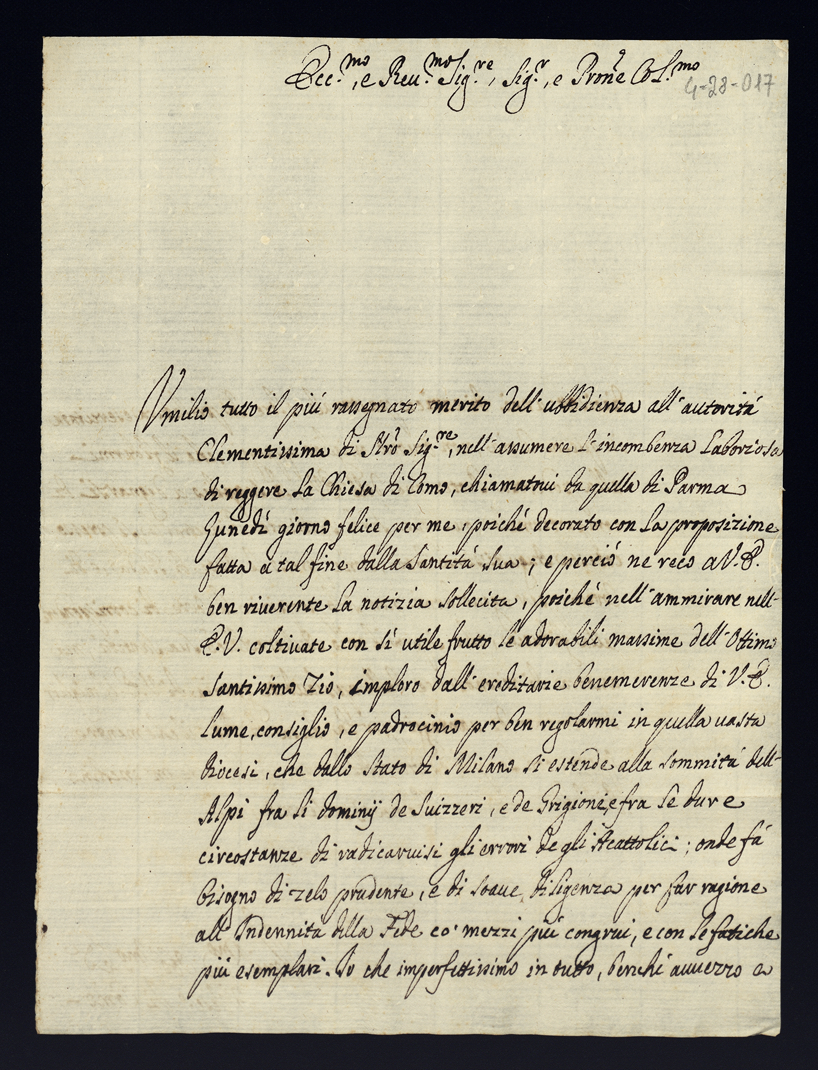 Ecc.mo, e Reu.mo Sig.re, Sig.r, e Pron'e Col.mo
4-28-017
Vmilio tutto il più rassegnato merito dell'ubbidienza all'autorità
Clementissima di Nro' Sig.re, nell'assumere l'incombenza Laboriosa
di reggere la Chiesa di Como, chiamatoui da quella di Parma
Lunedì giorno felice per me, poiché decorato con la proposizione
fatta a tal fine dalla Santità sua; e perciò ne reco a V. E.
ben riuerente la notizia sollecita, poiché nell'ammirare nell'
E. V. coltiuate con sì utile frutto le adorabili massime dell'Ottimo
Santissimo Zio, imploro dall'ereditarie benemerenze di V. E.
lume, consiglio, e padrocinio per ben regolarmi in quella uasta
diocesi, che dallo Stato di Milano si estende alla sommità dell'
Alpi fra li dominij de Suizzeri, e de Grigioni, e fra le dure
circostanze di radicaruisi gli errori degli Acattolici; onde fà
bisogno di zelo prudente, e di soaue diligenza per far ragione
all'Indennità della Fede co' mezzi più congrui, e con le fatiche
più esemplari. Io che imperfettissimo in tutto, benché auuezzo a